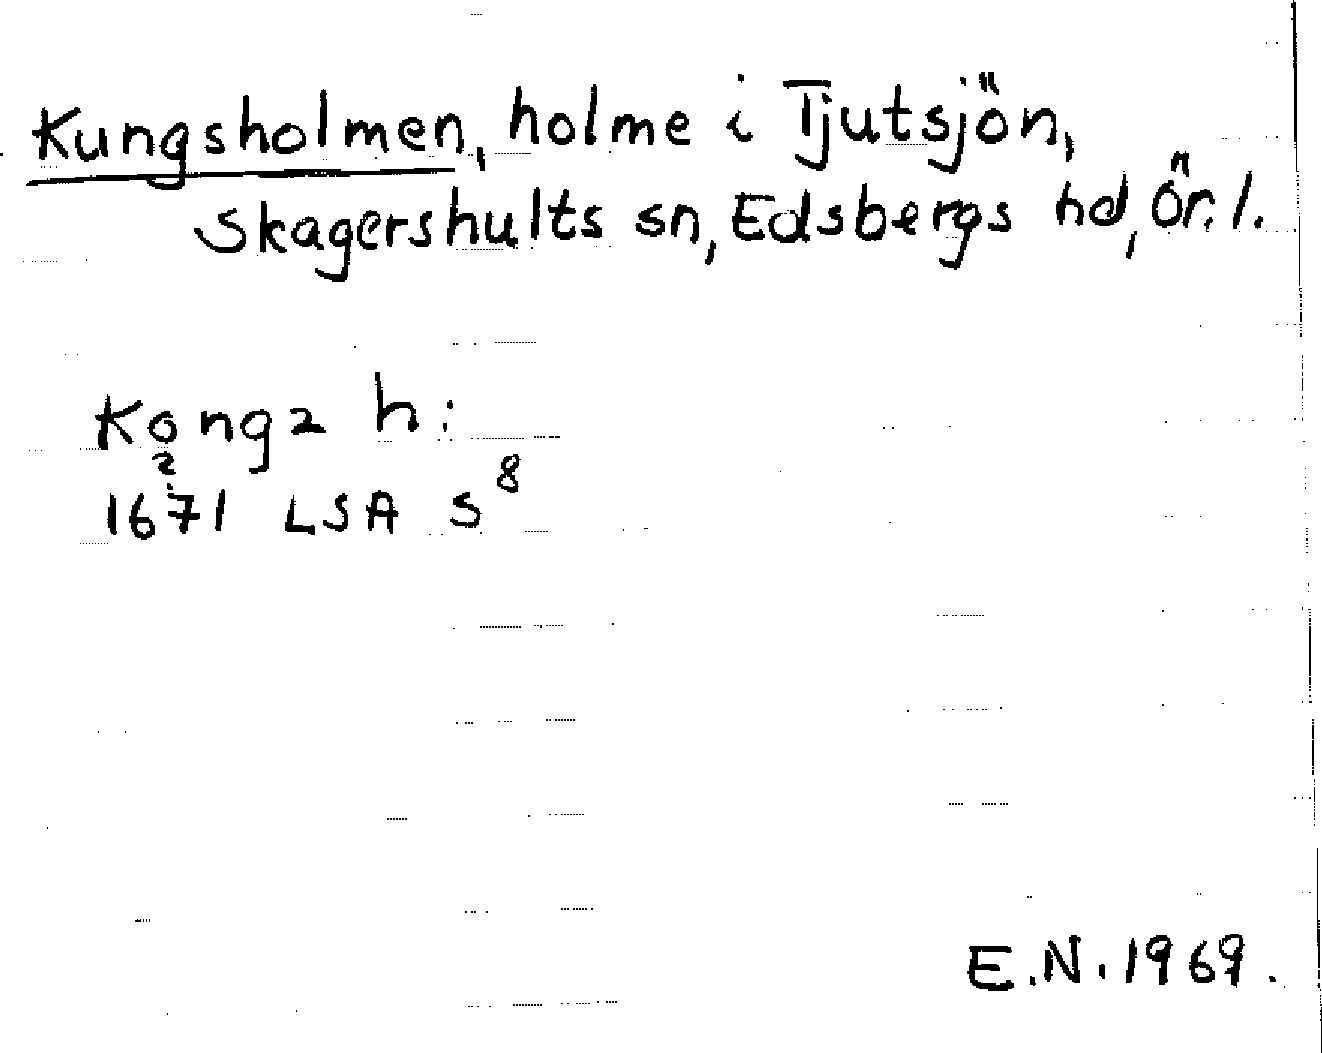 Kungsholmen, holme i Tjutsjön,
Skagershults sn, Edsbergs hd, Ör. l.
Kongz h:
1671 LSA S 8
E.N. 1969.